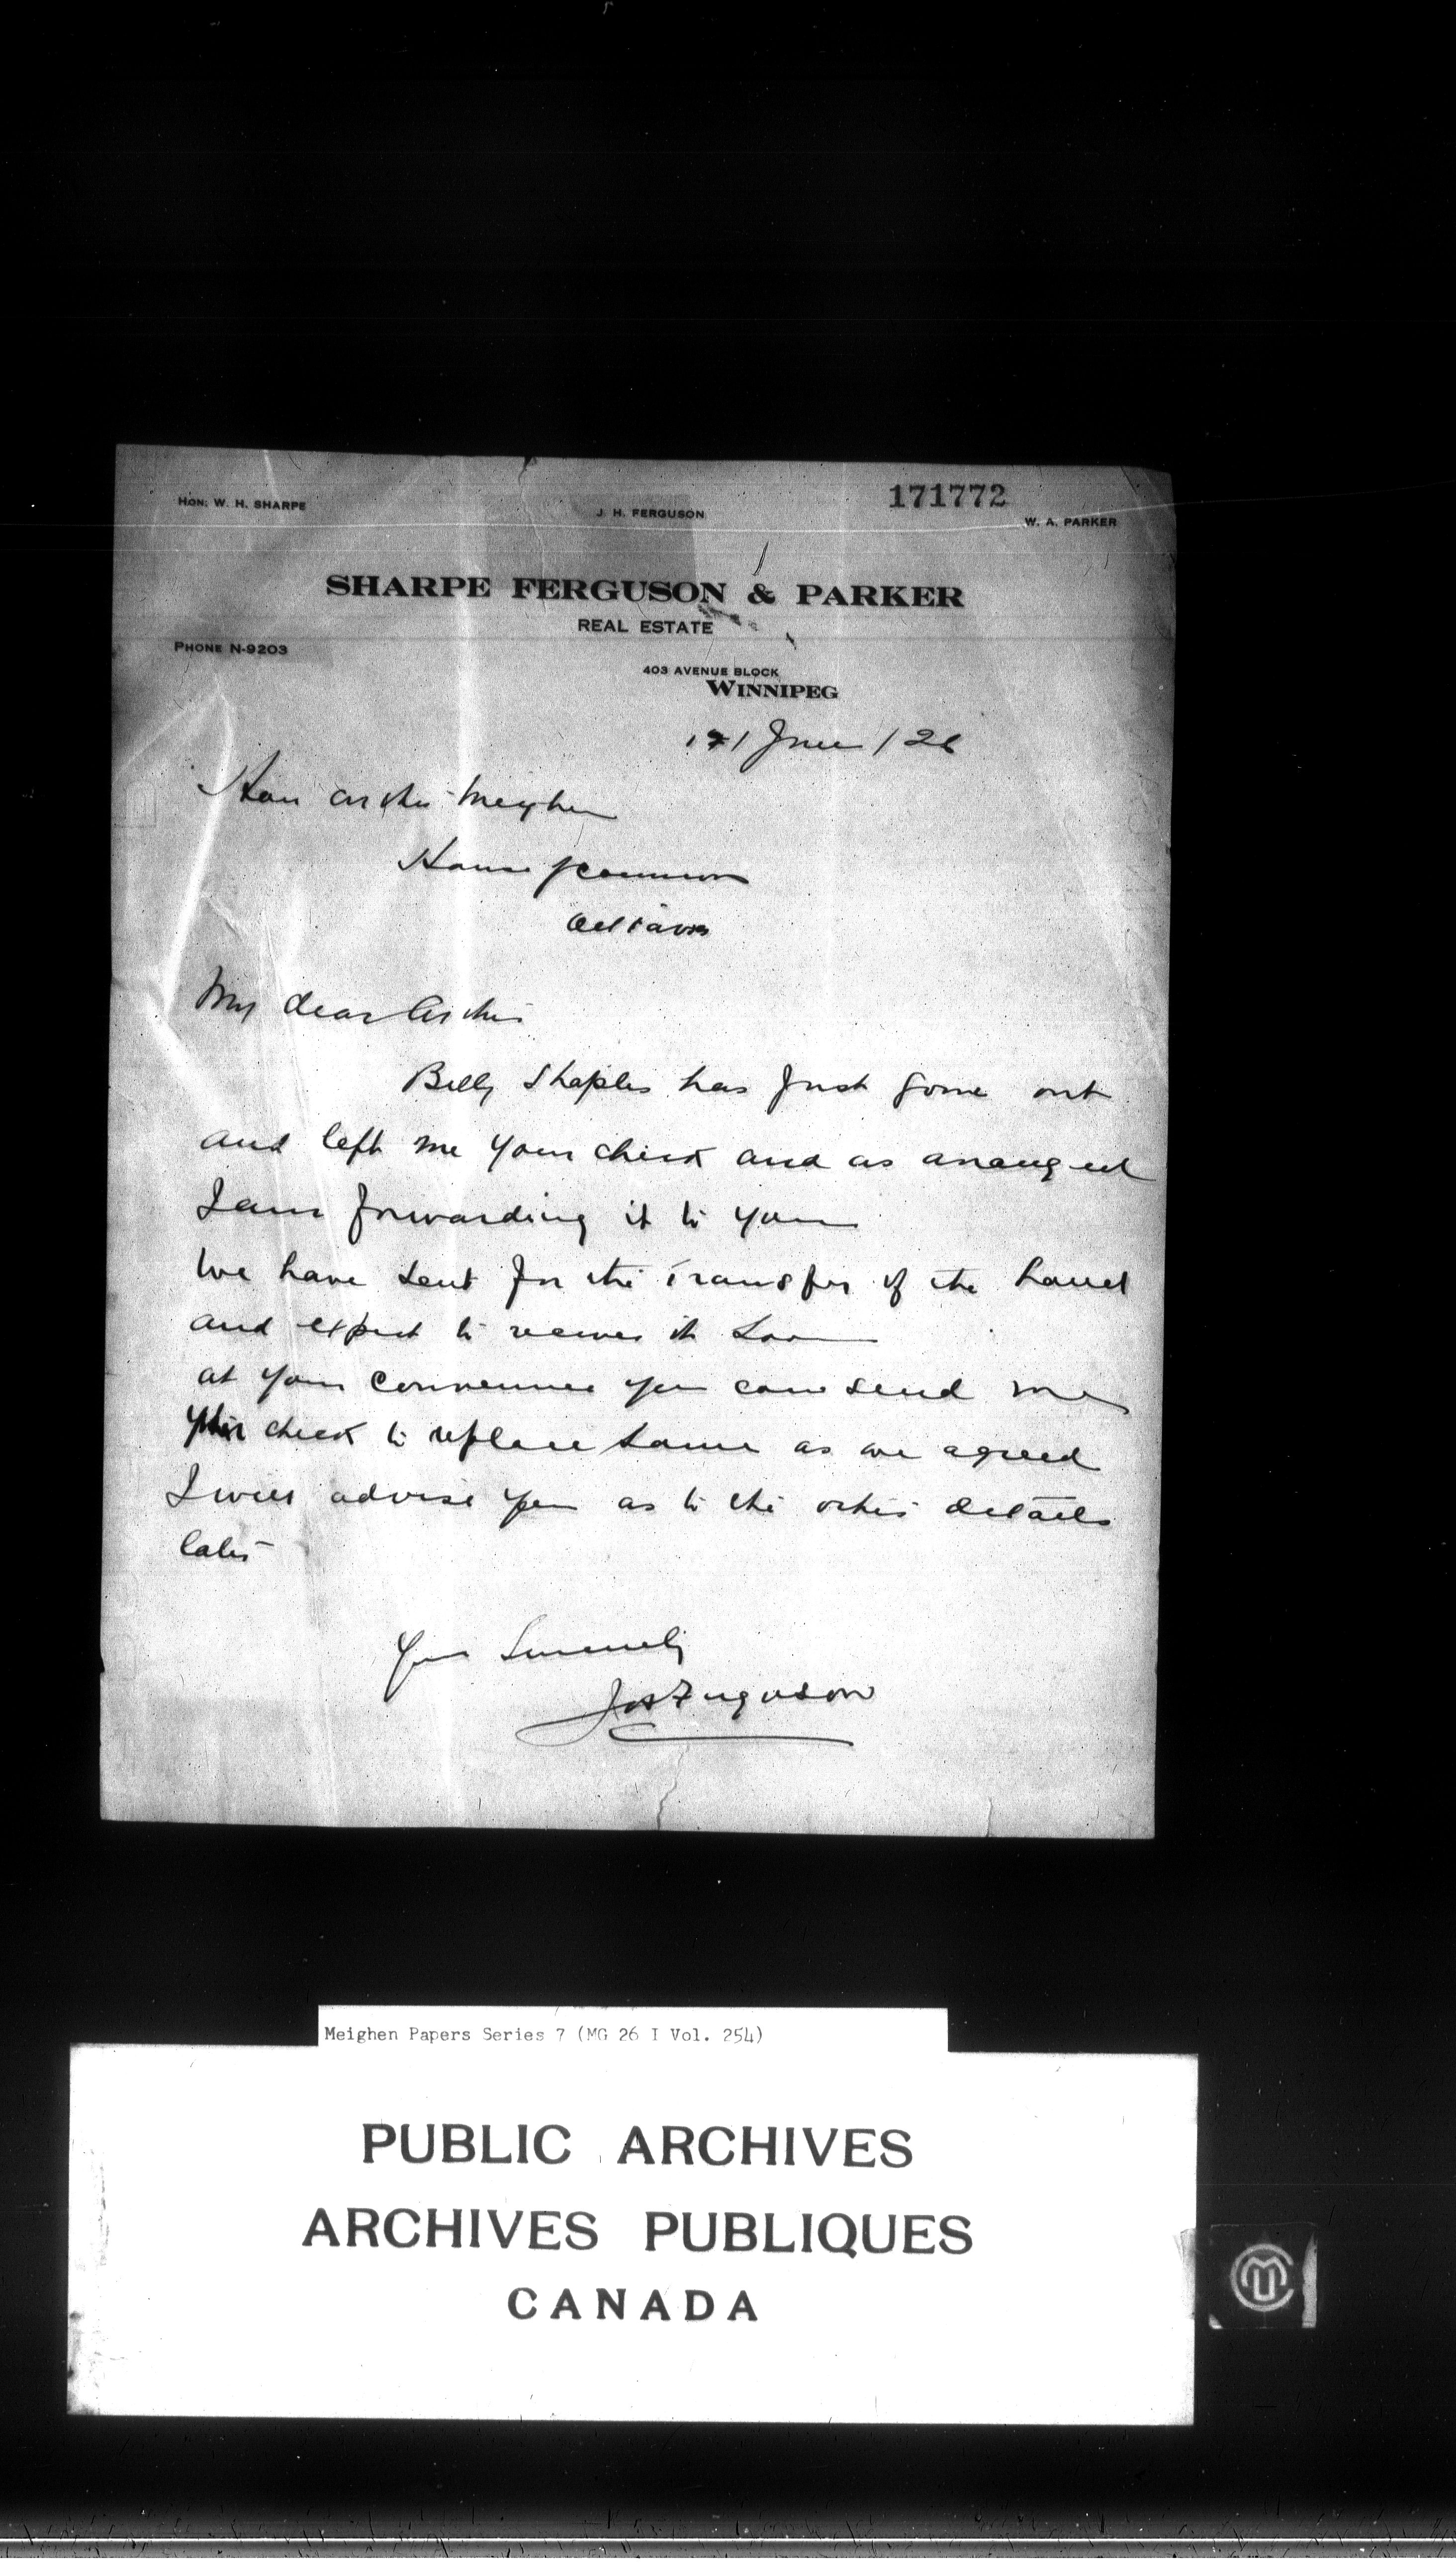 171772
HON. W. H. SHARPE
J. H. FERGUSON
W. A. PARKER
SHARPE FERGUSON & PARKER
REAL ESTATE
PHONE N-9203
403 AVENUE BLOCK
WINNIPEG
June / 26
Hon Arthur Meighen
House of Commons
Ottawa
My dear Arthur
Billy Shaples has just gone out
and left me your check and as arranged
I am forwarding it to you
We have sent for the Transfer of the land
and expect to receive it soon
at your convenience you can send me
check to replace same as we agreed
I will advise you as to the other details
later
Yours Sincerely
JH Ferguson
Meighen Papers Series 7 (MG 26 I Vol. 254)
PUBLIC ARCHIVES
ARCHIVES PUBLIQUES
CANADA